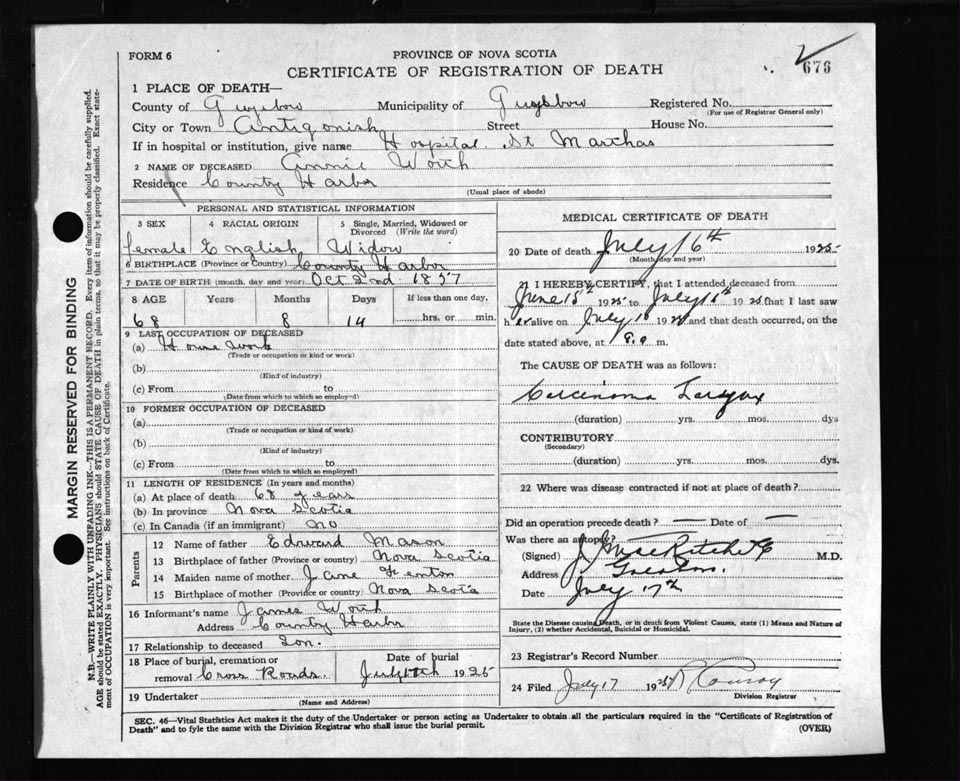 FORM 6
PROVINCE OF NOVA SCOTIA
CERTIFICATE OF REGISTRATION OF DEATH
676
1 PLACE OF DEATH—
County of Guysboro Municipality of Guysboro Registered No.
(For use of Registrar General only)
City or Town Antigonish Street House No.
If in hospital or institution, give name Hospital. St Marthas
2 NAME OF DECEASED Annie Worth
Residence County Harbor
(Usual place of abode)
PERSONAL AND STATISTICAL INFORMATION
3 SEX 4 RACIAL ORIGIN 5 Single, Married, Widowed or Divorced (Write the word)
female English Widow
6 BIRTHPLACE (Province or Country) County Harbor
7 DATE OF BIRTH (month, day and year) Oct 2nd. 1857
8 AGE Years Months Days If less than one day,
68 8 14 hrs. or min.
9 LAST OCCUPATION OF DECEASED
(a) House Work
(Trade or occupation or kind or work)
(b)
(Kind of industry)
(c) From to
(Date from which to which so employed)
10 FORMER OCCUPATION OF DECEASED
(a)
(Trade or occupation or kind of work)
(b)
(Kind of industry)
(c) From to
(Date from which to which so employed)
11 LENGTH OF RESIDENCE (In years and months)
(a) At place of death 68 years
(b) In province Nova Scotia
(c) In Canada (if an immigrant) no
Parents
12 Name of father Edward Mason
13 Birthplace of father (Province or country) Nova Scotia
14 Maiden name of mother Jane Fenton
15 Birthplace of mother (Province or country) Nova Scotia
16 Informant's name James Worth
Address County Harbr
17 Relationship to deceased Son.
18 Place of burial, cremation or removal Cross Roads. Date of burial July 18th 1925
19 Undertaker
(Name and Address)
MEDICAL CERTIFICATE OF DEATH
20 Date of death July 16th 1925
(Month, day and year)
21 I HEREBY CERTIFY, that I attended deceased from
June 15th 1925 to July 16th 1925 that I last saw
her alive on July 16 1925 and that death occurred, on the
date stated above, at m.
The CAUSE OF DEATH was as follows:
Carcinoma Larynx
(duration) yrs. mos. dys
CONTRIBUTORY
(Secondary)
(duration) yrs. mos. dys.
22 Where was disease contracted if not at place of death?
Did an operation precede death? — Date of —
Was there an autopsy?
(Signed) M.D.
Address
Date July 17th
State the Disease causing Death, or in death from Violent Causes, state (1) Means and Nature of
Injury, (2) whether Accidental, Suicidal or Homicidal.
23 Registrar's Record Number
24 Filed July 17 1925 R Conroy
Division Registrar
SEC. 46—Vital Statistics Act makes it the duty of the Undertaker or person acting as Undertaker to obtain all the particulars required in the "Certificate of Registration of
Death" and to fyle the same with the Division Registrar who shall issue the burial permit.
(OVER)
MARGIN RESERVED FOR BINDING
N.B.—WRITE PLAINLY WITH UNFADING INK—THIS IS A PERMANENT RECORD. Every item of information should be carefully supplied.
AGE should be stated EXACTLY. PHYSICIANS should STATE CAUSE OF DEATH in plain terms, so that it may be properly classified. Exact state-
ment of OCCUPATION is very important. See instructions on back of Certificate.